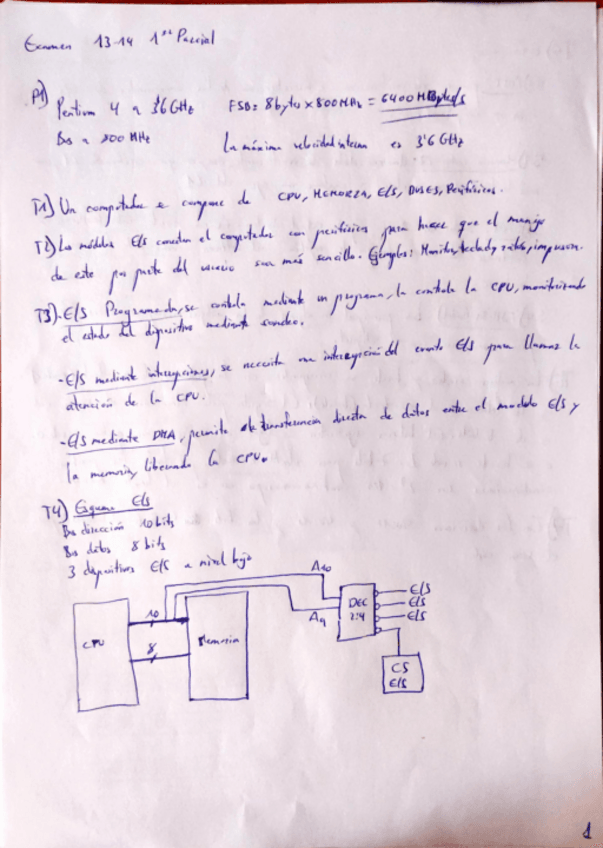 Examen 13-14 1er Parcial
P1) Pentium 4 a 3'6 GHz FSB= 8 bytes x 800 MHz = 6400 MBytes/s
Bus a 800 MHz La máxima velocidad interna es 3'6 GHz
T1) Un computador se compone de CPU, MEMORIA, E/S, BUSES, Periféricos.
T2) Los módulos E/S conectan el computador con periféricos para hacer que el manejo
de este por parte del usuario sea más sencillo. Ejemplos: Monitor, teclado, ratón, impresora.
T3) - E/S Programada, se controla mediante un programa, la controla la CPU, monitorizando
el estado del dispositivo mediante sondeo.
- E/S mediante interrupciones, se necesita una interrupción del evento E/S para llamar la
atención de la CPU.
- E/S mediante DMA, permite la transferencia directa de datos entre el modulo E/S y
la memoria, liberando la CPU.
T4) Esquema E/S
Bus dirección 10 bits
Bus datos 8 bits
3 dispositivos E/S a nivel bajo
A10
CPU 10 Memoria A9 DEC 2:4 E/S
E/S
E/S
8
CS
E/S
1